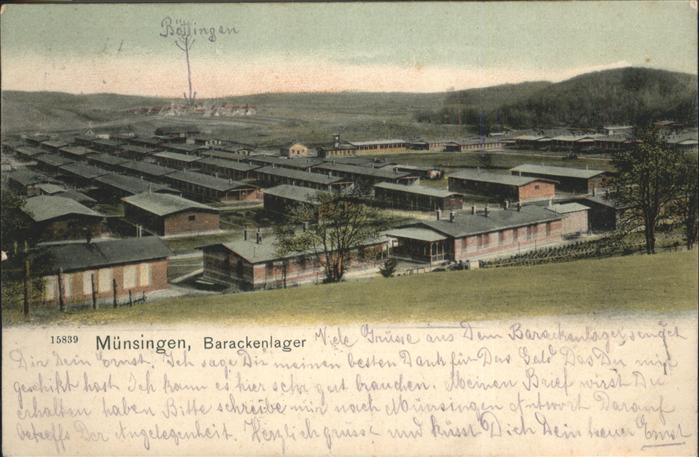 Böttingen
15839 Münsingen, Barackenlager
Viele Grüsse aus Dem Barackenlager sendet
Dir Dein Ernst. Ich sage Dir meinen besten Dank für Das Geld Das Du mir
geschikt hast Ich kann es hier sehr gut brauchen. Meinen Brief wirst Du
erhalten haben Bitte schreibe mir nach Münsingen Antwort Darauf
betreffs Der Angelegenheit. Herzlich grüsse und küsst Dich Dein treuer Ernst